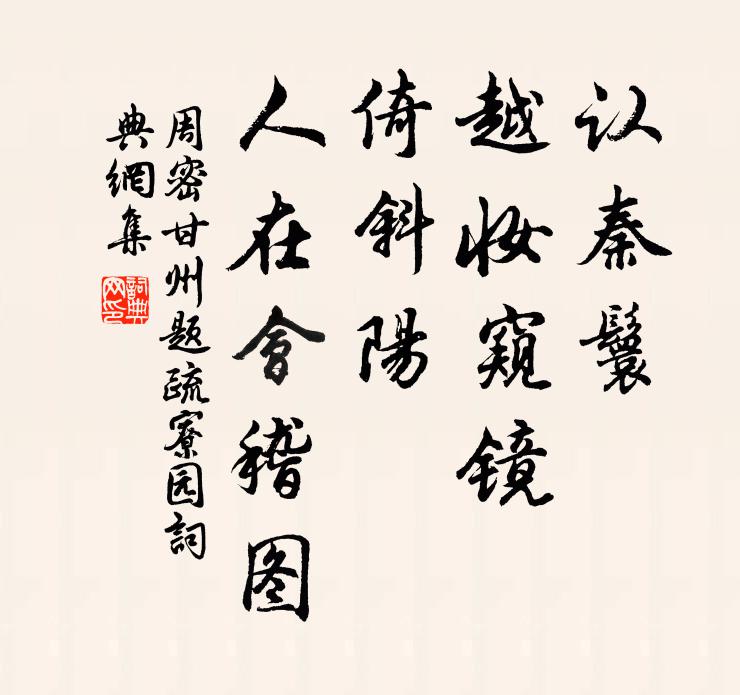 认秦鬟
越妆窥镜
倚斜陽
人在會稽图
周密甘州题疏寮园詞
典網集
詞典
网印